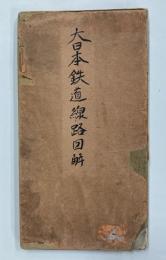 大日本鉄道線路図解